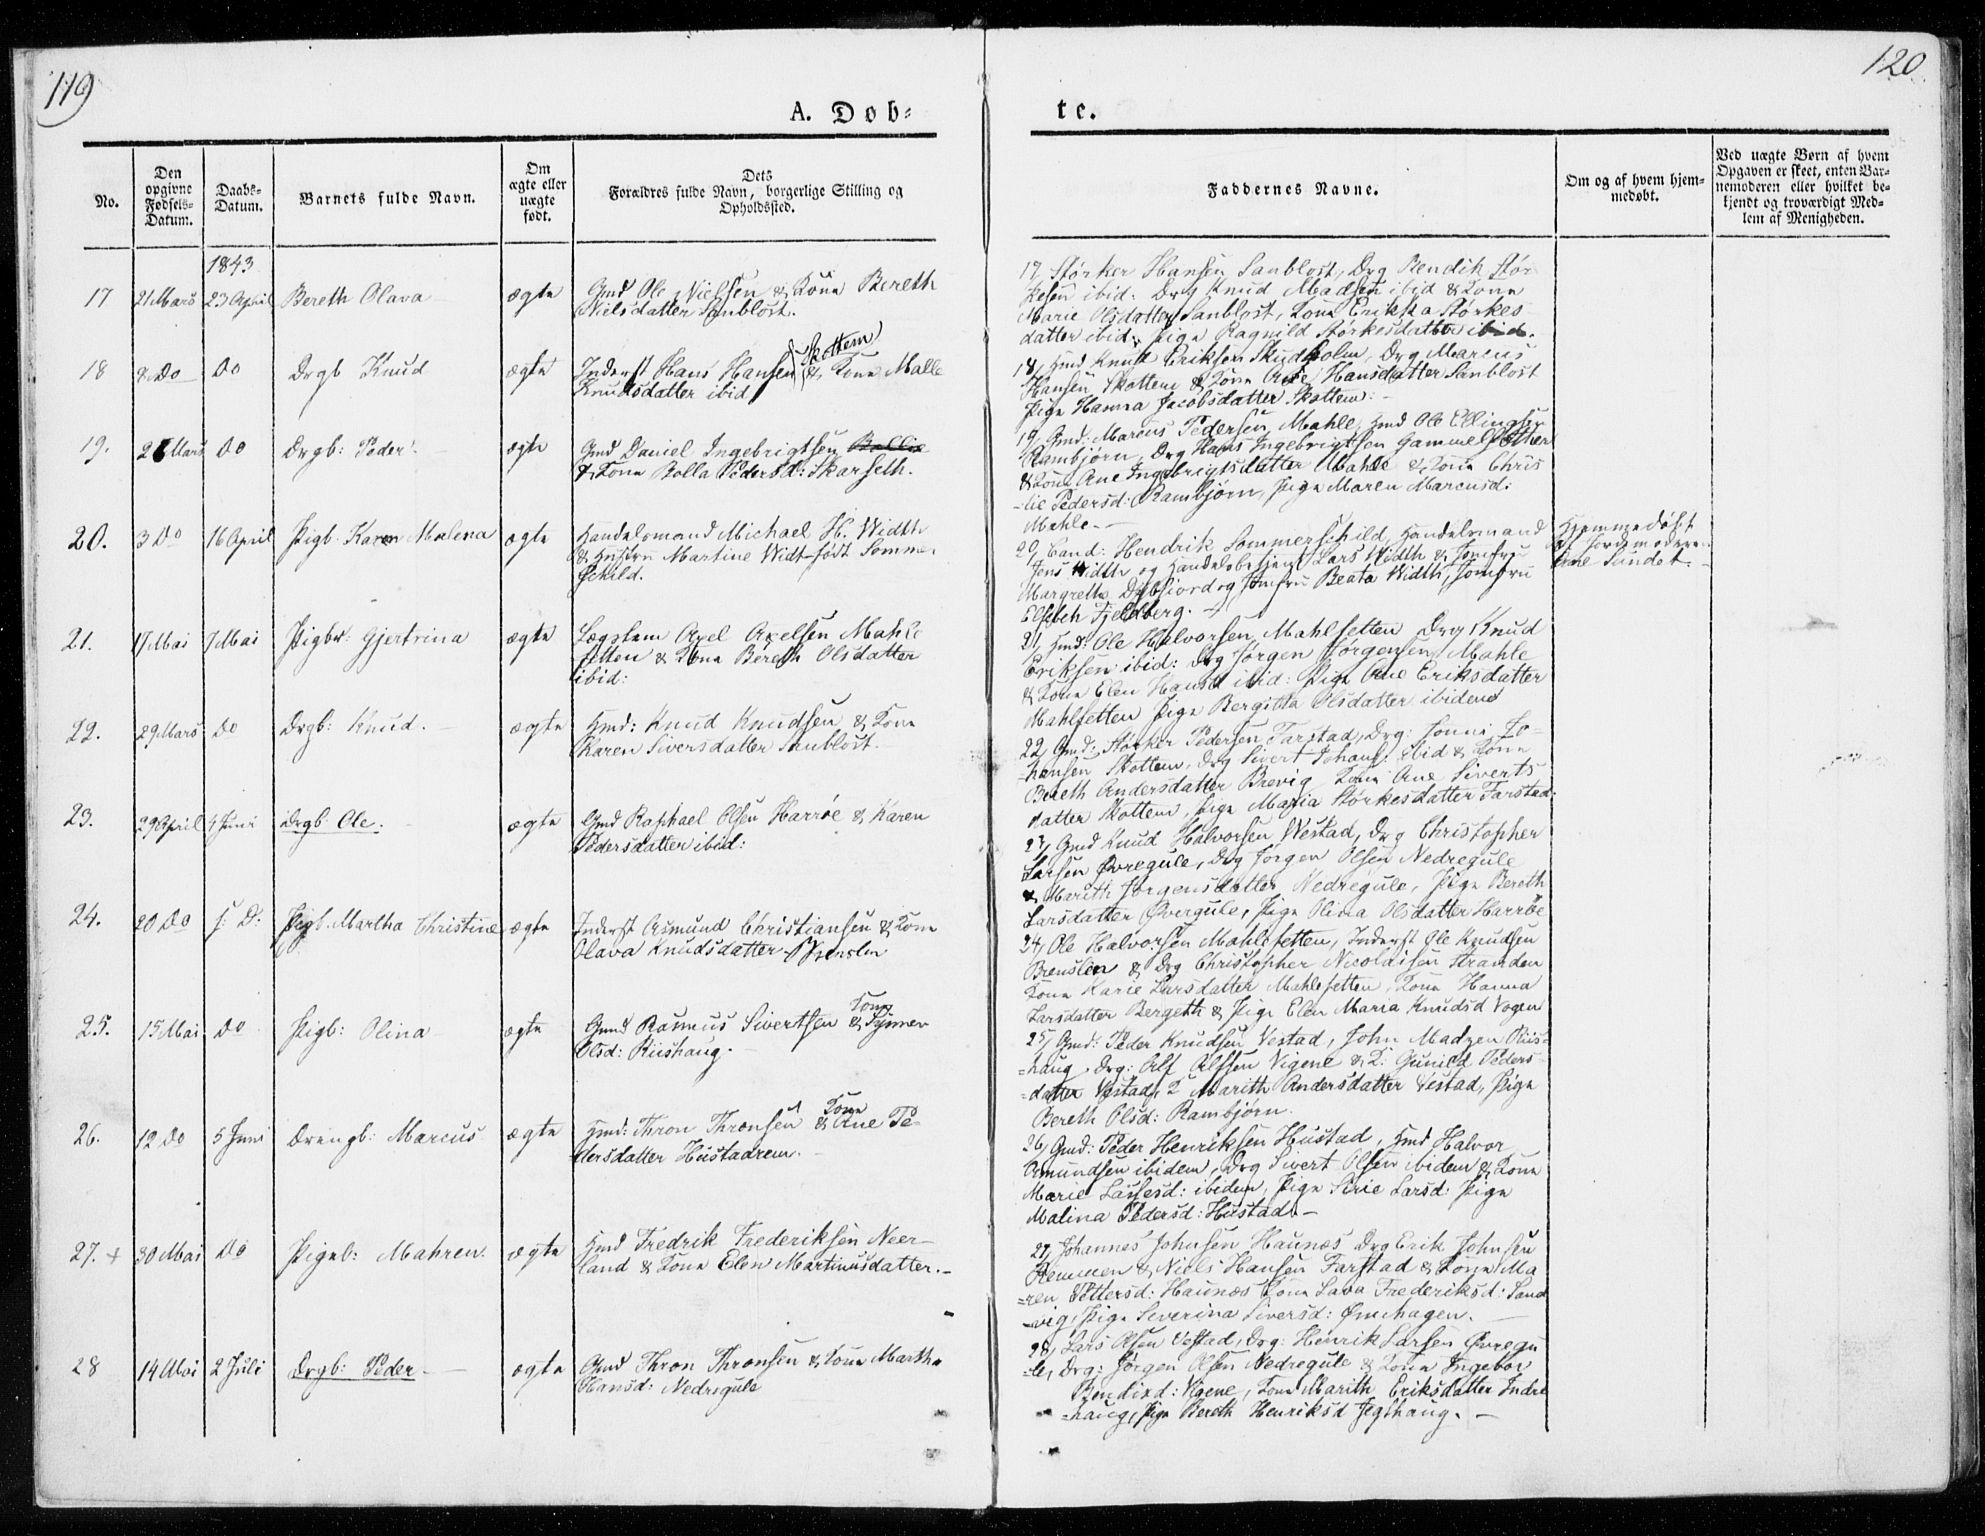 119
120
A. Døb-
te.
No.
Den opgivne Fødsels-Datum.
Daabs-Datum.
Barnets fulde Navn.
Om ægte eller uægte født.
Dets
Forældres fulde Navn, borgerlige Stilling og
Opholdssted.
Faddernes Navne.
Om og af hvem hjem-
medøbt.
Ved uægte Børn af hvem
Opgaven er skeet, enten Bar-
nemoderen eller hvilket be-
kjendt og troværdigt Med-
lem af Menigheden.
1843
17 21 Mars 23 April Bereth Olava ægte Gmd Ole Nielsen & Kone Bereth
Nielsdatter Sanblost.
17, Størker Hansen Sanblost, Drg Bendik Stør
kesen ibid: Drg Knud Madsen ibid & Kone
Marie Olsdatter Sanblost, Kone Erikka Størkes
datter ibid, Pige Ragnild Størkesdatter ibid.
18 Do Do Drgb Knud ægte Inderst Hans Hansen Skottem & Kone Malle
Knudsdatter ibid
18, Hmd Knud Eriksen Skudholm, Drg Marcus
Hansen Skottem & Kone Hansdatter Sanblost
Pige Hanna Jacobsdatter Skottem.
19. Mars Do Drgb: Peder. ægte Gmd Daniel Ingebrigtsen
& Kone Bolla Pedersd: Skarseth.
19, Gmd: Marcus Pedersen Mahle, Hmd Ole Ellingsen
Rambjørn, Drg Hans Ingebrigtsen Gammelsæther
& Kone Ane Ingebrigtsdatter Mahle & Kone Chris
-tie Pedersd: Rambjørn, Pige Maren Marcusd:
Mahle.-
20. 3 Do 16 April Pigb. Karen Malena ægte Handelsmand Michael H. Width
& Hustru Martine Widt født Sommer
schild.
20, Cand: Hendrik Sommerschild, Handelsmand
Jens Width og Handelsbetjent Lars Width & Jomfru
Margrethe og Jomfru Beata Width, Jomfru
Elsebeh Fjeldberg.-
Hjemmedøbt
af Jordmoderen
Sundet.-
21. 17 Mai 7 Mai Pigb: Gjertrina ægte Lægslem Axel Axelsen Mahle
setten & Kone Bereth Olsdatter
ibid:
21, Hmd: Ole Halvorsen Mahlesetten Drg Knud
Eriksen ibid: Drg Jørgen Jørgensen Mahle
& Kone Elen Hansd ibid: Pige Ane Eriksdatter
Mahlsetten Pige Bergitta Olsdatter ibidem
22. 29 Mars Do Drgb: Knud.- ægte Hmd: Knud Knudsen & Kone
Karen Siversdatter Sanblost.-
22, Gmd: Størker Pedersen Farstad, Drg: Jonni Jo-
-hansen Skottem, Drg Sivert Johans: ibid & Kone
Bereth Andersdatter Brevig Kone Ane Siverts
datter Skottem, Pige Maria Størkesdatter Farstad:
23. 29 April 4 Juni Drgb Ole. ægte Gmd Raphael Olsen Harrøe & Karen
Pedersdatter ibid:
23, Gmd Knud Halvorsen Westad, Drg Christopher
Larsen Øvregule, Drg Jørgen Olsen Nedregule
& Marith Jørgensdatter Nedregule, Pige Bereth
Larsdatter Øvergule, Pige Olina Olsdatter Harrøe
24. 20 Do s: D: Pigb. Martha Christine ægte Inderst Asmund Christiansen & Kone
Olava Knudsdatter
24, Ole Halvorsen Mahlesetten, Inderst Ole Knudsen
Brenslen & Drg Christopher Nicolaisen Stranden
Kone Karie Larsdatter Mahlesetten, Kone Hanna
Larsdatter Bergeth & Pige Elen Maria Knudsd Vogen
25. 15 Mai Do Pigb: Olina ægte Gmd Rasmus Sivertsen & Kone Synnev
Olsd: Riishaug.
25, Gmd: Peder Knudsen Vestad, John Madzen Riis-
=haug, Drg: Alf Alfsen Vigene & K: Gunild Peders-
=datter Vestad, K Marith Andersdatter Vestad, Pige
Bereth Olsd: Rambjørn.
26. 12 Do 5 Juni Drengb: Marcus ægte Hmd: Thron Thronsen & Kone Ane Pe-
dersdatter Hustadrem.
26, Gmd: Peder Henriksen Hustad, Hmd Halvor
Amundsen ibidem, Drg Sivert Olsen ibidem & Kone
Marie Lassesd: ibidem, Pige Sirie Larsd: Pige
Malina Pedersd: Hustad.-
27. + 30 Mai Do Pigeb: Mahren. ægte Hmd Fredrik Frederiksen Neer-
land & Kone Elen Martinusdatter.-
27, Johannes Johnsen Haunæs Drg Erik Johnsen
& Niels Hansen Farstad & Kone Ma
=ren Pettersd: Haunæs Kone Lava Frederiksd: Sand
-vig, Pige Severina Siversd:
28 14 Mai 2 Juli Drgb: Peder.- ægte Gmd Thron Thronsen & Kone Martha
Hansd: Nedregule
28, Lars Olsen Vestad, Drg: Henrik Larsen Øvregu
-le, Drg: Jørgen Olsen Nedregule & Kone Ingebor
Bendixd: Vigene, Kone Marith Eriksdatter Indre
=haug, Pige Bereth Henriksd Jegthaug.-